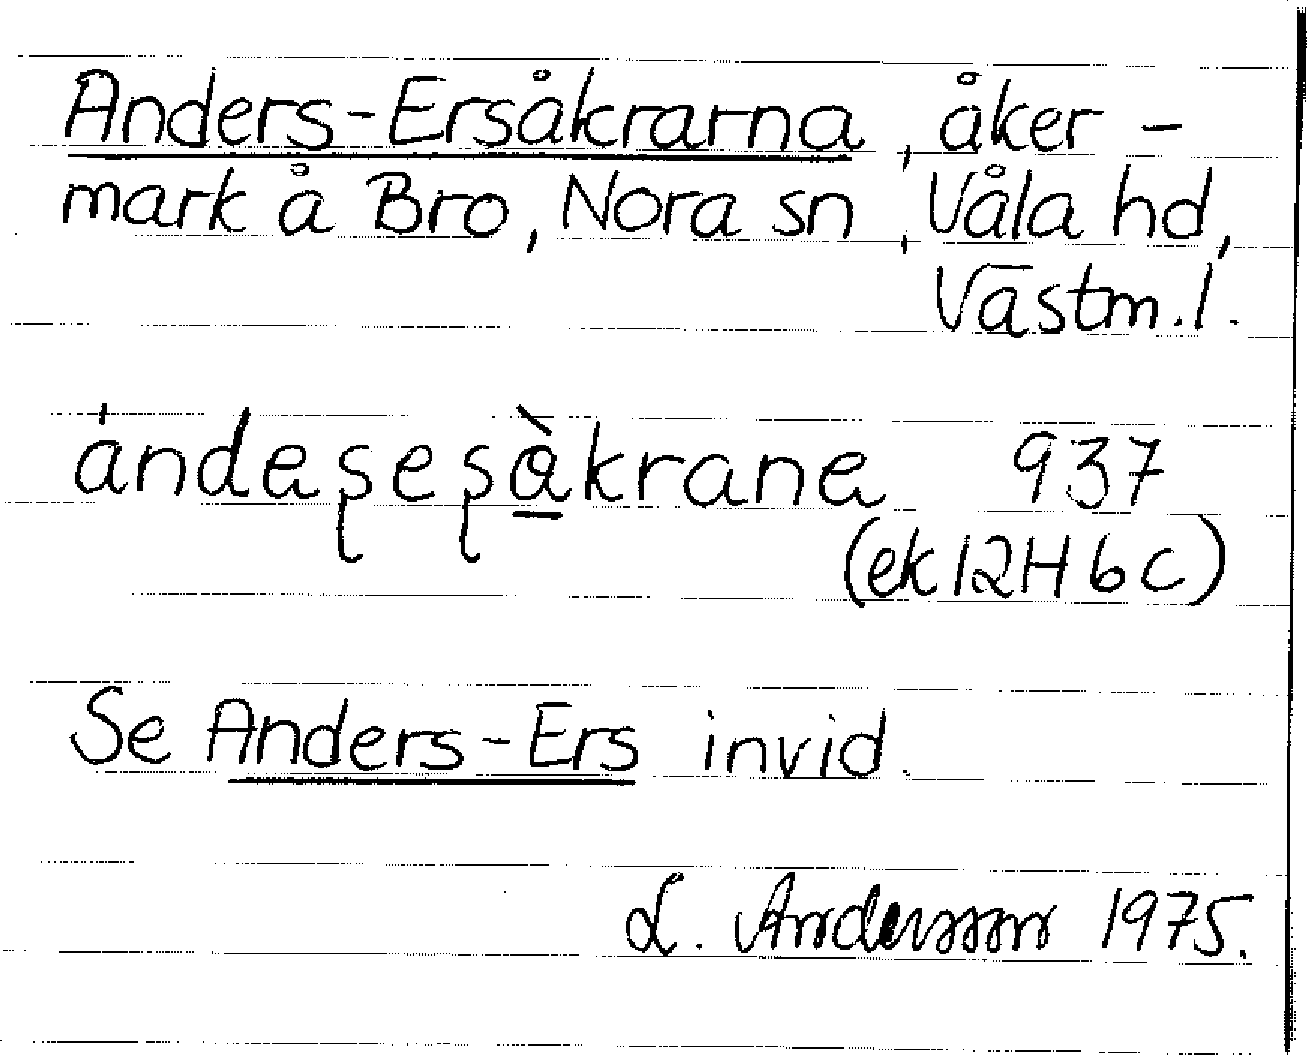 Anders-Ersåkrarna, åker-
mark å Bro, Nora sn, Våla hd,
Västm.l.
ándaʂeʂå̀krana 937
(ek 12H 6c)
Se Anders-Ers invid.
L. Andersson 1975.